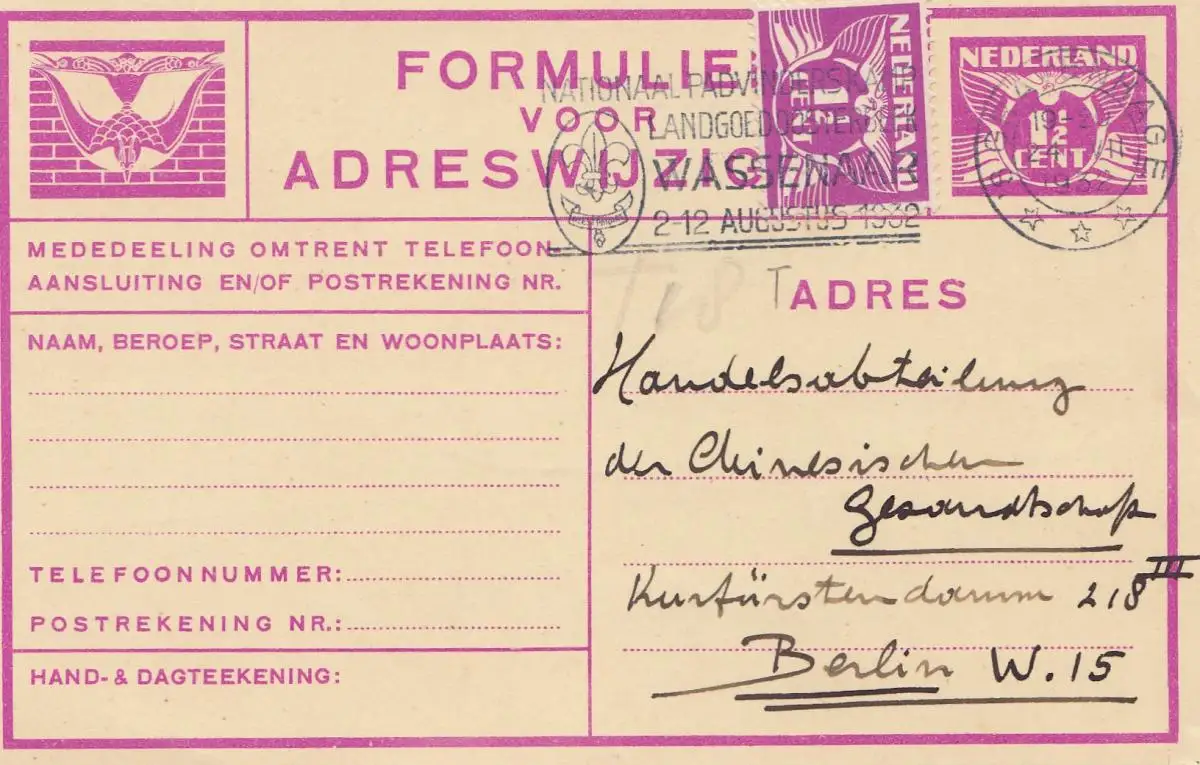 FORMULIE
VOOR
ADRESWIJZIG
NATIONAAL PADVINDERSKAMP
LANDGOED OOSTERBEEK
WASSENAAR
2-12 AUGUSTUS 1932
NEDERLAND
1½
CENT
NEDERLAND
1½
CENT
'S GRAVENHAGE
1932
MEDEDEELING OMTRENT TELEFOON-
AANSLUITING EN/OF POSTREKENING NR.
NAAM, BEROEP, STRAAT EN WOONPLAATS:
TELEFOONNUMMER:
POSTREKENING NR.:
HAND- & DAGTEEKENING:
T
ADRES
Handelsabteilung
der Chinesischen
Gesandtschaft
Kurfürstendamm 218 III
Berlin W. 15